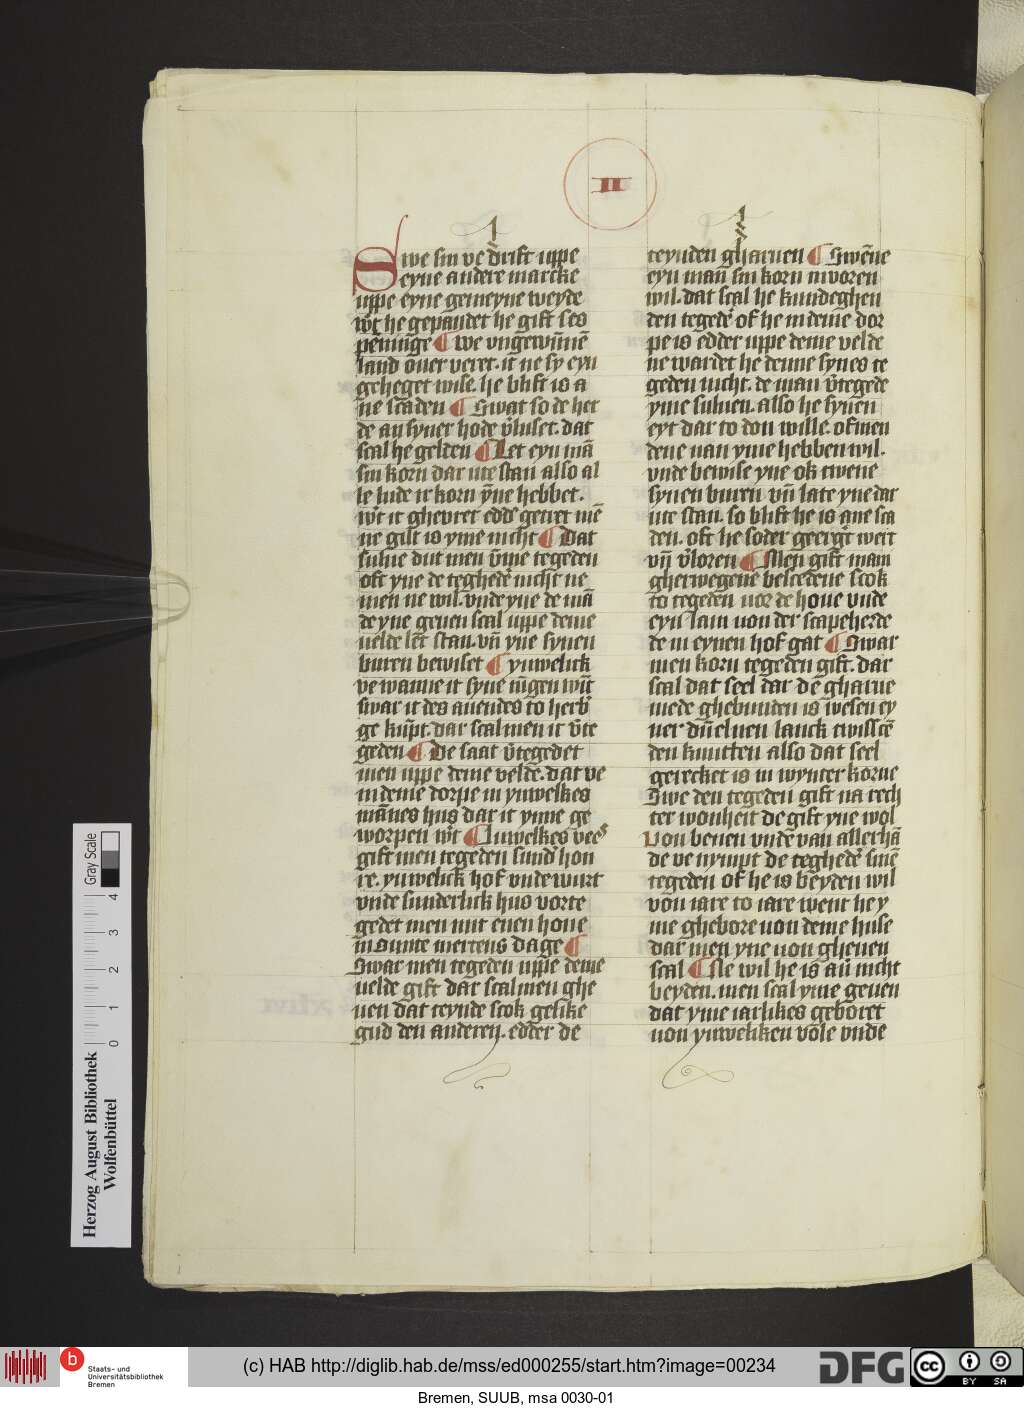 II
Swe sin ve drift uppe
eyne andere marcke
uppe eyne gemeyne weyde
wͭ he gepandet he gift ses
penninge ¶ we ungewūnē
land over veret. it ne sy eyn
geheget wise. he blift is a
ne scaden ¶ Swat so de her
de an syner hode vͦluset. dat
scal he gelden ¶ Let eyn mā
sin korn dar ute stan also al
le lude it korn ȳne hebbet.
wͭ it ghevret eddͤ getret mē
ne gilt is yme nicht ¶ Dat
sulve dut men ūme tegeden
oft yne de teghedeͬ nicht ne
men ne wil. vnde yne de mā
de yne geven scal uppe deme
velde let stan. vn̄ yne synen
buren bewiset ¶ ynwelick
ve wanne it syne iūgen wīt
swar it des avendes to herbͤ
ge kūpt. dar scal men it vͦte
geden ¶ Die saat vͦtegedet
men uppe deme velde. dat ve
in deme dorpe in ynwelkes
mānes hus dar it ynne ge
worpen wͭ ¶ Inwelkes vees
gift men tegeden sundͤ hon
re. ynwelick hof vnde wurt
vnde sunderlick hus vorte
gedet men mit enen hone
in sunte mertens dage ¶
Swar men tegeden uppe deme
velde gift dar scal men ghe
ven dat teynde scok gelike
gud den anderen. edder de
teynden gharuen ¶ Swēne
eyn man sin korn invoren
wil. dat scal he kundeghen
den tegedeͬ of he in deme dor
pe is edder uppe deme velde
ne wardet he denne synes te
geden nicht. de man vͦtegede
yme sulven. also he synen
eyt dar to don wille. of men
dene van yme hebben wil.
vnde bewise yne ok twene
synen buren vn̄ late yne dar
ute stan. so blift he is ane sca
den. oft he soder geergͭ wert
vn̄ vͦloren ¶ Men gift mam
ghetwegene bescedene scok
to tegeden vor de hove vnde
eyn lam von der scapeherde
de in eynen hof gat ¶ Swar
men korn tegeden gift. dar
scal dat seel dar dē gharue
mede ghebunden is wesen ey
ner dumelnen lanck twisscē
den knutten also dat seel
gerecket is in wynter korne
Swe den tegeden gift na rech
ter wonheit de gift yne wol
Von beven vnde van allerhā
de ve nympt de teghedeͬ sinē
tegeden of he is beyden wil
von iare to iare went hey
me ghebore von deme huse
dar men yne von gheven
scal ¶ Ne wil he is av̄ nicht
beyden. men scal yme geven
dat yme iarlikes geboret
von ynweliken vole vnde
Herzog August Bibliothek
Wolfenbüttel
Gray Scale
0 1 2 3 4
b
Staats- und
Universitätsbibliothek
Bremen
(c) HAB http://diglib.hab.de/mss/ed000255/start.htm?image=00234
DFG
cc BY SA
Bremen, SUUB, msa 0030-01